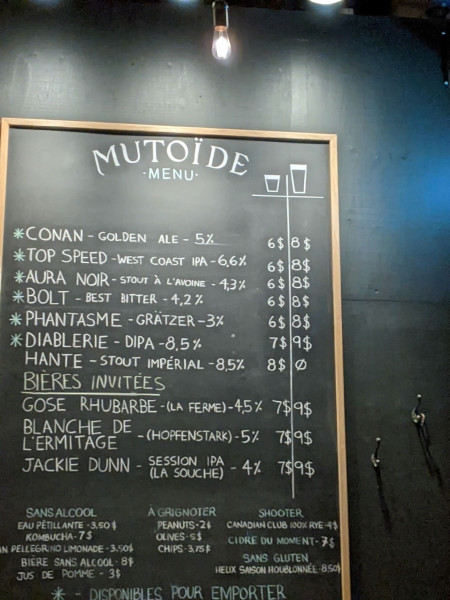 MUTOÏDE
·MENU·
*CONAN - GOLDEN ALE - 5% 6$ 8$
*TOP SPEED - WEST COAST IPA - 6,6% 6$ 8$
*AURA NOIR - STOUT À L'AVOINE - 4,3% 6$ 8$
*BOLT - BEST BITTER - 4,2% 6$ 8$
*PHANTASME - GRÄTZER - 3% 6$ 8$
*DIABLERIE - DIPA - 8,5% 7$ 9$
HANTE - STOUT IMPÉRIAL - 8,5% 8$ Ø
BIÈRES INVITÉES
GOSE RHUBARBE - (LA FERME) - 4,5% 7$ 9$
BLANCHE DE
L'ERMITAGE - (HOPFENSTARK) - 5% 7$ 9$
JACKIE DUNN - SESSION IPA
(LA SOUCHE) - 4% 7$ 9$
SANS ALCOOL
EAU PÉTILLANTE - 3.50$
KOMBUCHA - 7$
PELLEGRINO LIMONADE - 3.50$
BIÈRE SANS ALCOOL - 8$
JUS DE POMME - 3$
À GRIGNOTER
PEANUTS - 2$
OLIVES - 5$
CHIPS - 3,75$
SHOOTER
CANADIAN CLUB 100% RYE - 4$
CIDRE DU MOMENT -
SANS GLUTEN
HELIX SAISON HOUBLONNÉE - 8.50$
* - DISPONIBLES POUR EMPORTER